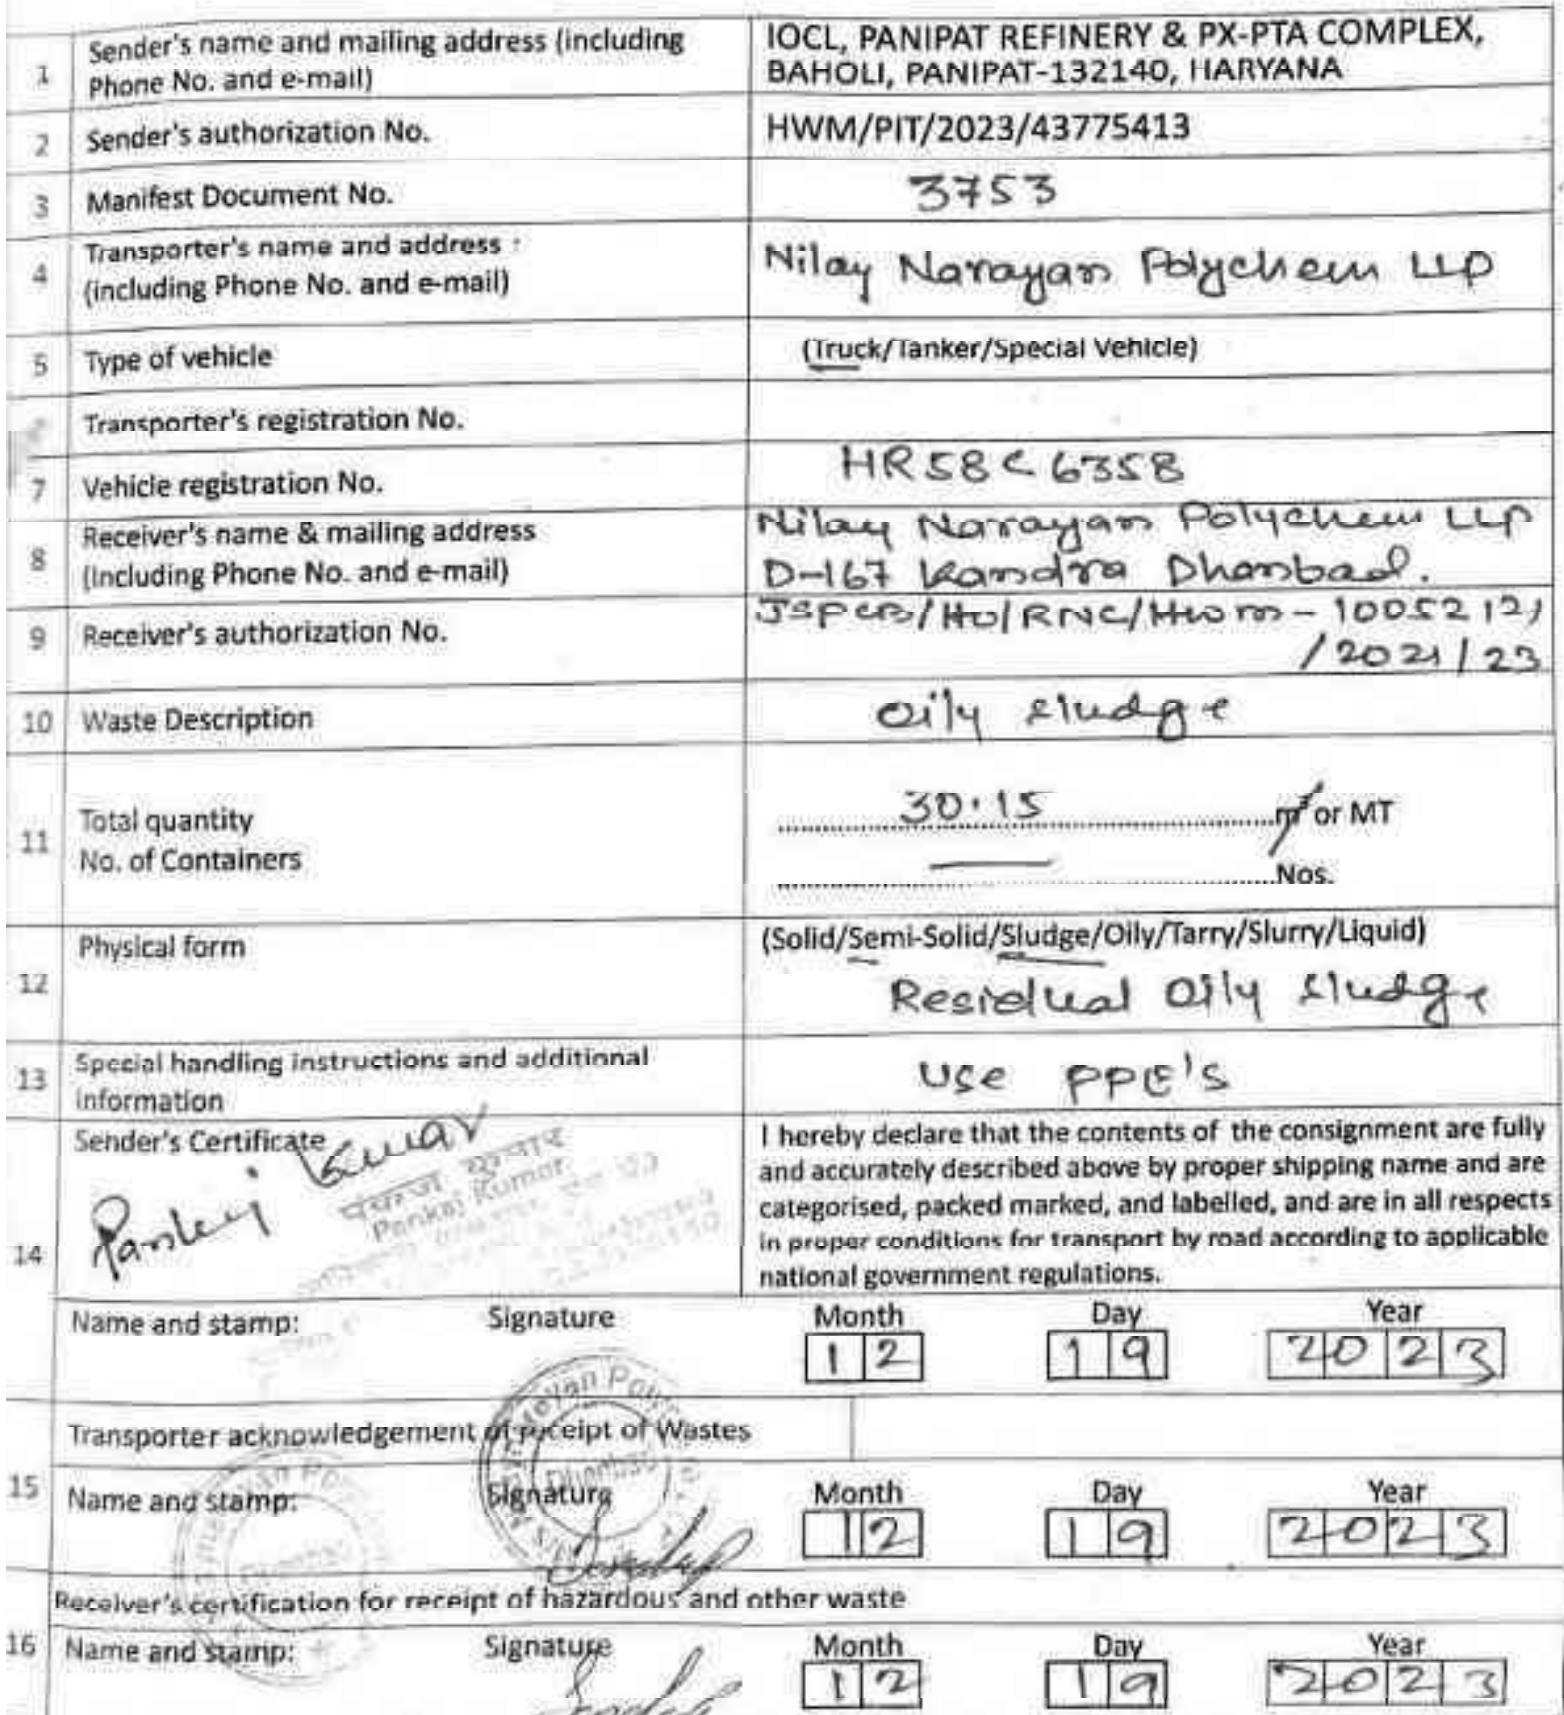 1 Sender's name and mailing address (including Phone No. and e-mail) IOCL, PANIPAT REFINERY & PX-PTA COMPLEX,
BAHOLI, PANIPAT-132140, HARYANA
2 Sender's authorization No. HWM/PIT/2023/43775413
3 Manifest Document No. 3753
4 Transporter's name and address
(including Phone No. and e-mail) Nilay Narayan Polychem LLP
5 Type of vehicle (Truck/Tanker/Special Vehicle)
Transporter's registration No.
7 Vehicle registration No. HR58C6358
8 Receiver's name & mailing address Nilay Narayan Polychem LLP
(Including Phone No. and e-mail) D-167 Kandra Dhanbad.
9 Receiver's authorization No. JSPCB/HO/RNC/HWM-10052121
/2021/23
10 Waste Description Oily sludge
11 Total quantity 30.15 m³ or MT
No. of Containers Nos.
12 Physical form (Solid/Semi-Solid/Sludge/Oily/Tarry/Slurry/Liquid)
Residual Oily sludge
13 Special handling instructions and additional
information Use PPE's
14 Sender's Certificate I hereby declare that the contents of the consignment are fully
and accurately described above by proper shipping name and are
categorised, packed marked, and labelled, and are in all respects
in proper conditions for transport by road according to applicable
national government regulations.
Pankaj Kumar
पंकज कुमार
Pankaj Kumar
Name and stamp: Signature Month Day Year
12 19 2023
Transporter acknowledgement of receipt of Wastes
15 Name and stamp: Signature Month Day Year
12 19 2023
Dhanbad
Dhanbad
Receiver's certification for receipt of hazardous and other waste
16 Name and stamp: Signature Month Day Year
12 19 2023